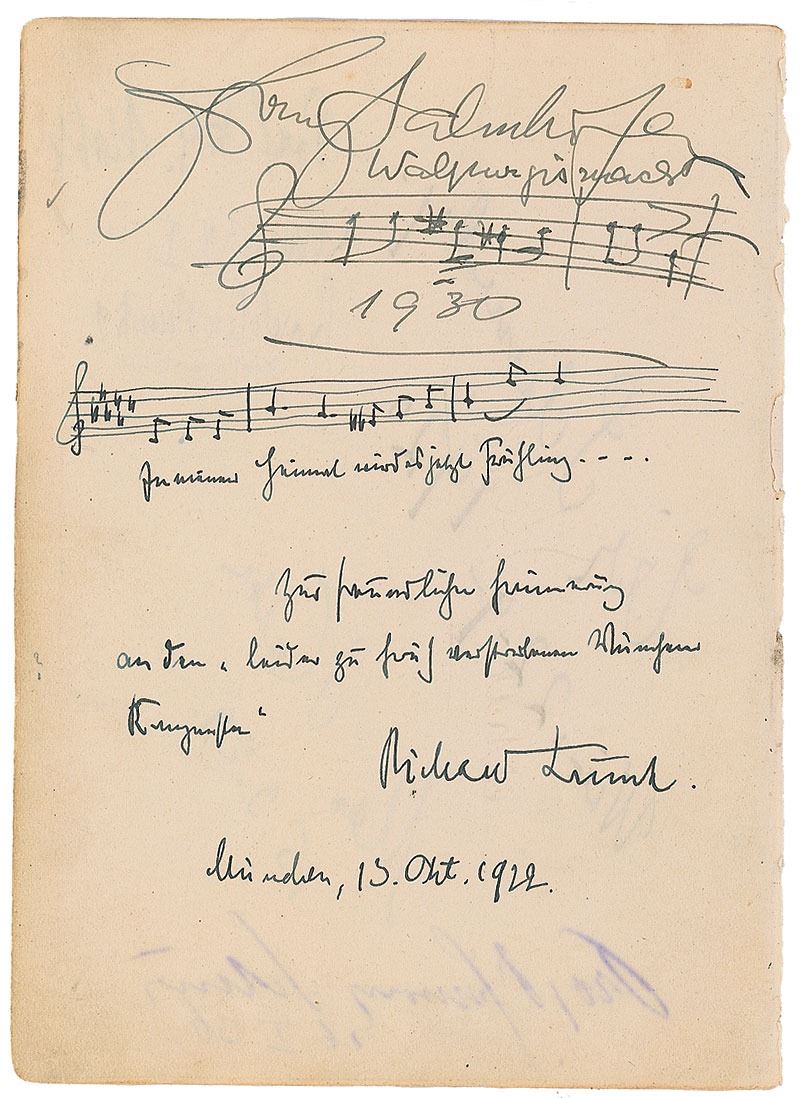 Franz Salmhofer
Walpurgisnacht
1930
In meiner Heimat wird es jetzt Frühling . . . .
Zur freundlichen Erinnerung
an den „leider zu früh verstorbenen Münchener
Komponisten“
Richard Trunk.
München, 13. Okt. 1922.